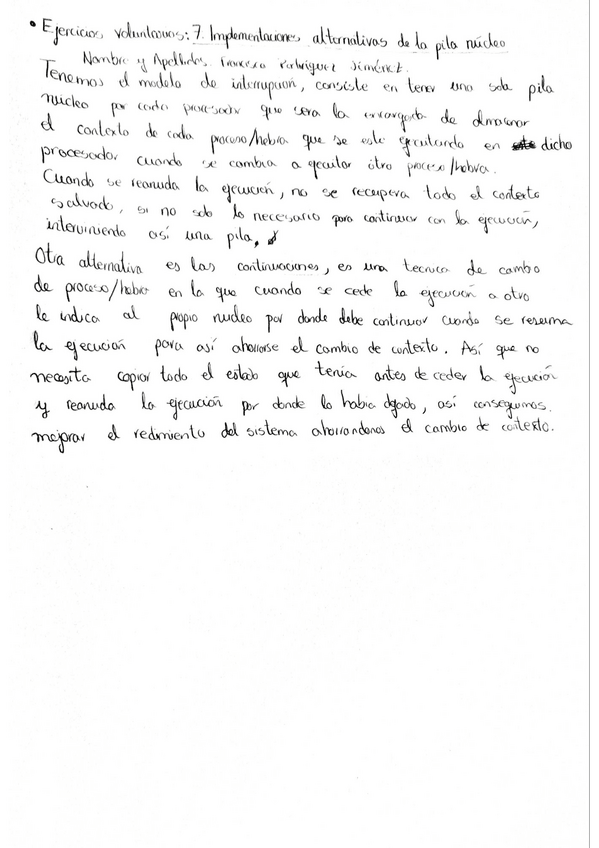 • Ejercicios voluntarios: 7. Implementaciones alternativas de la pila núcleo
Nombre y Apellidos: Francisco Rodríguez Jiménez.
Tenemos el modelo de interrupción, consiste en tener una sola pila
núcleo por cada procesador que sera la encargada de almacenar
el contexto de cada proceso/hebra que se este ejecutando en dicho
procesador cuando se cambia a ejecutar otro proceso/hebra.
Cuando se reanuda la ejecución, no se recupera todo el contexto
salvado, si no solo lo necesario para continuar con la ejecución,
interviniendo así una pila.
Otra alternativa es las continuaciones, es una tecnica de cambio
de proceso/hebra en la que cuando se cede la ejecución a otro
le indica al propio nucleo por donde debe continuar cuando se resuma
la ejecución para así ahorrarse el cambio de contexto. Así que no
necesita copiar todo el estado que tenía antes de ceder la ejecución
y reanuda la ejecución por donde lo habia dejado, así conseguimos
mejorar el redimiento del sistema ahorrandonos el cambio de contexto.